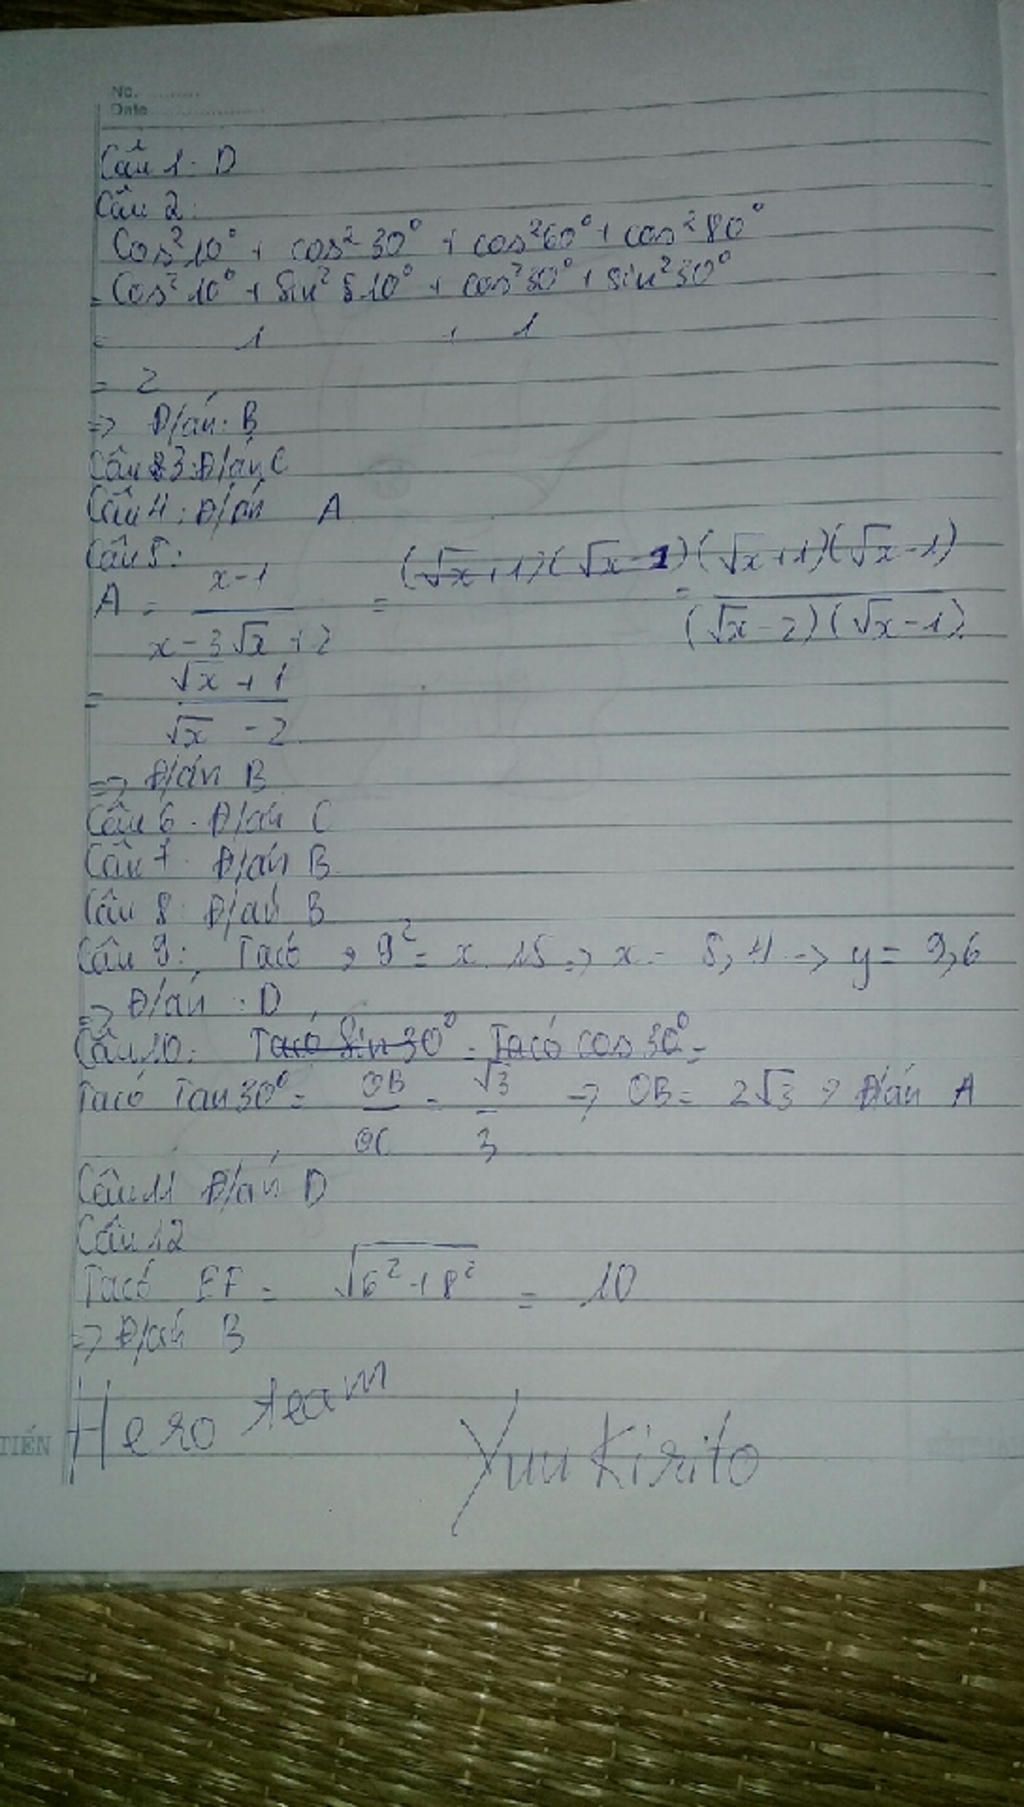 No. ..........
Date ....................
Câu 1: D
Câu 2:
Cos²10° + cos²30° + cos²60° + cos²80°
= Cos²10° + Sin²10° + cos²30° + sin²30°
= 1 + 1
= 2
=> Đ/án: B
Câu 3: Đ/án C
Câu 4: Đ/án A
Câu 5:
A = x-1 / x-3√x+2 = (√x+1)(√x-1) = (√x+1)(√x-1) / (√x-2)(√x-1)
= √x+1 / √x-2
=> Đ/án B
Câu 6: Đ/án C
Câu 7: Đ/án B
Câu 8: Đ/án B
Câu 9: Ta có 9² = x.15 => x = 5,4 -> y = 9,6
=> Đ/án: D
Câu 10: Ta có Sin 30° = Ta có cos 30° =
Ta có Tan 30° = OB/OC = √3/3 => OB = 2√3 => Đ/án A
Câu 11 Đ/án D
Câu 12
Ta có EF = √6²+8² = 10
=> Đ/án B
Hero team
Yuu Kirito
TIẾN